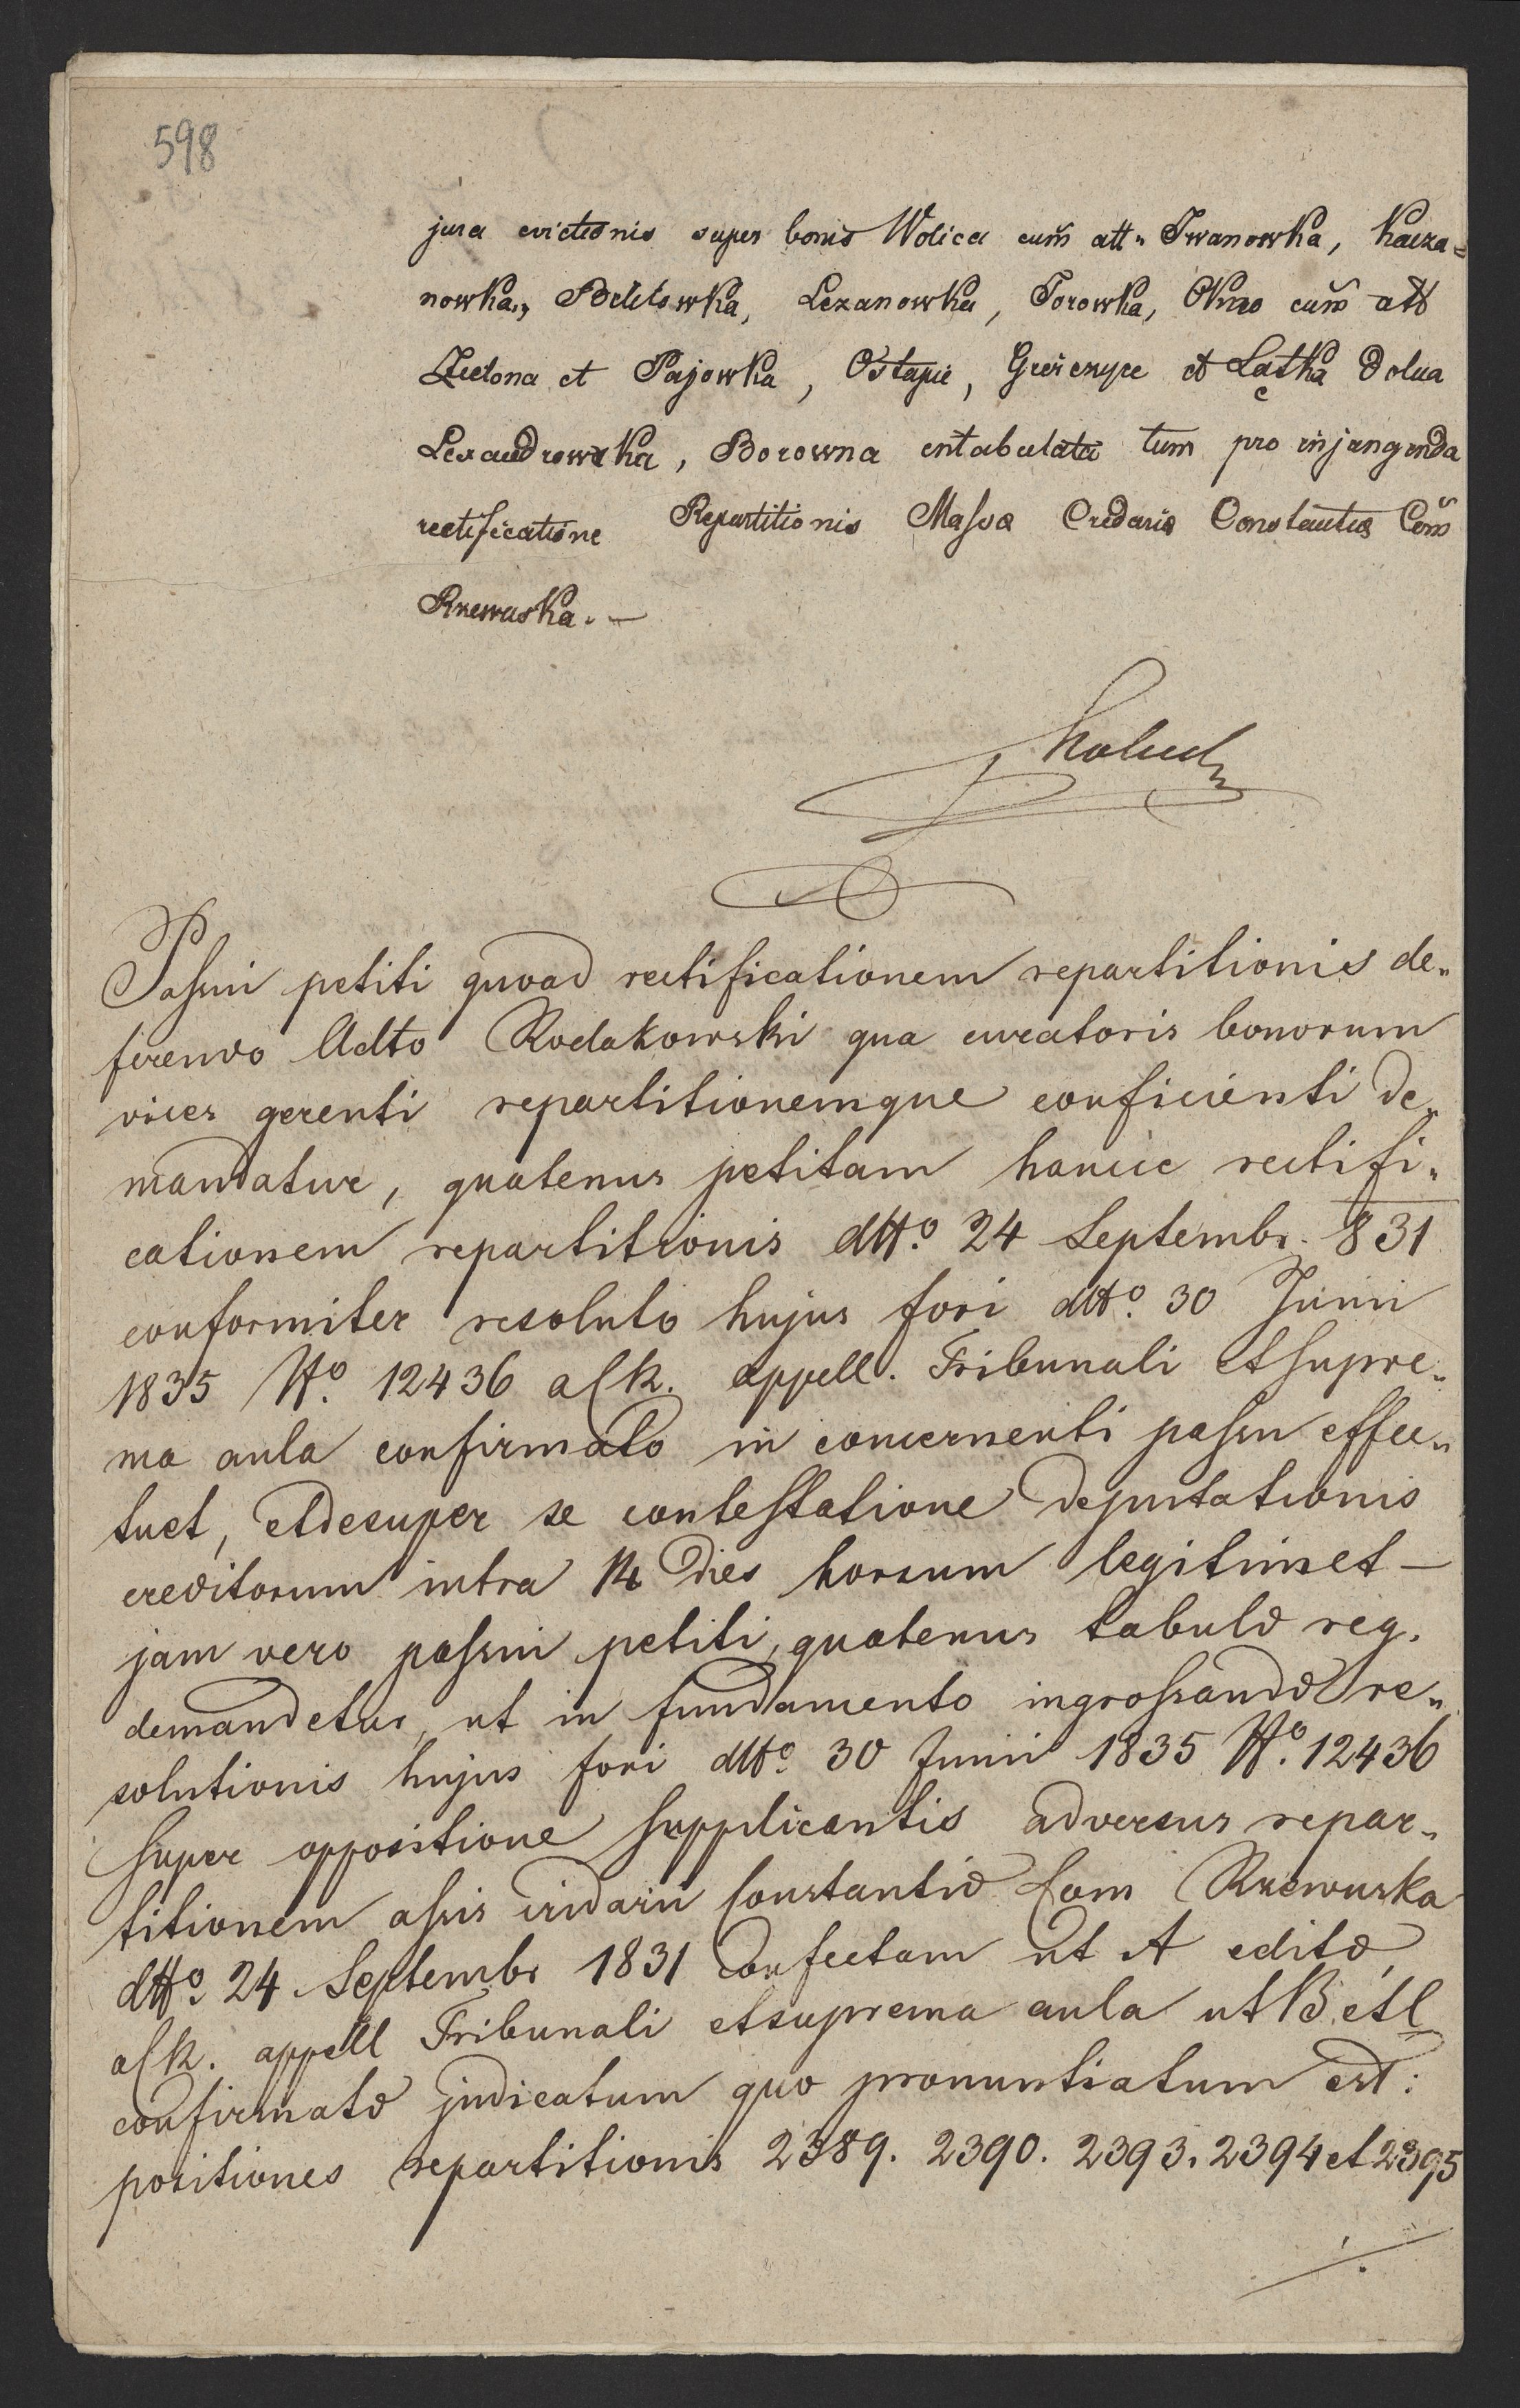 598
jura evictionis super bonis Wolica cum att„ Iwanowka, Kacza=
nowka„ Bilitowka, Lezanowka, Torowka, Okno cum att
Zielona et Pajowka, Ostapie, Grzieczyce et Łątka Dolua
Lexandrowka, Borowna intabulata tum pro injungenda
rectificatione Repartitionis Massæ Cridariæ Constantiæ Com
Rzewuska. —
Passui petiti quoad rectificationem repartitionis de„
ferendo Adto Rodakowski qua curatoris bonorum
vices gerenti repartitionemque conficienti de„
mandatur, quatenus petitam hancce rectifi„
cationem repartitionis dtto. 24 Septembr. 831
conformiter resoluto hujus fori dtto. 30 Junii
1835 No. 12436 a C. R. appell. Tribunali et supre„
ma aula confirmato in concernenti passu effec„
tuet, et desuper se contestatione deputationis
creditorum intra 14 dies horsum legitimet —
jam vero passui petiti, quatenus tabulæ reg.
demandetur, ut in fundamento ingrossandæ re„
solutionis hujus fori dtto. 30 Junii 1835 No. 12436
super oppositione supplicantis adversus repar„
titionem assis cridarii Constantiæ Com Rzewuska
dtto. 24 Septembr 1831 confectam ut A editæ,
a C. R. appell Tribunali et suprema aula ut B. et C
confirmatæ judicatum quo pronuntiatum est:
positiones repartitionis 2389. 2390. 2393. 2394 et 2395
./.